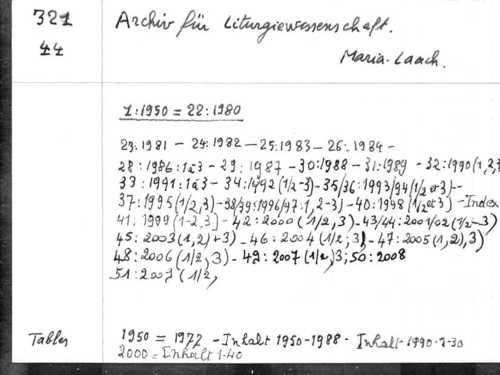 321 Archiv für Liturgiewissenschaft.
44 Maria-Laach.
1:1950 = 22:1980
23:1981 - 24:1982 - 25:1983 - 26:1984 -
28:1986:1à3 - 29:1987 - 30:1988 - 31:1989 - 32:1990(1,2,3
33:1991:1à3 - 34:1492(1/2-3) - 35/36:1993/94(1/2et3) -
37:1995(1/2,3) - 38/39:1996/97:1,2-3) - 40:1998(1/2et3) - Index
41:1999(1-2,3) - 42:2000(1/2,3) - 43/44:2001/02(1/2-3)
45:2003(1,2)+3) - 46:2004(1/2;3) - 47:2005(1,2),3)
48:2006(1/2,3) - 49:2007(1/2,3; 50:2008
51:2007(1/2,
Tables 1950 = 1977 - Inhalt 1950-1988 - Inhalt-1990-1-30
2000 = Inhalt 1-40